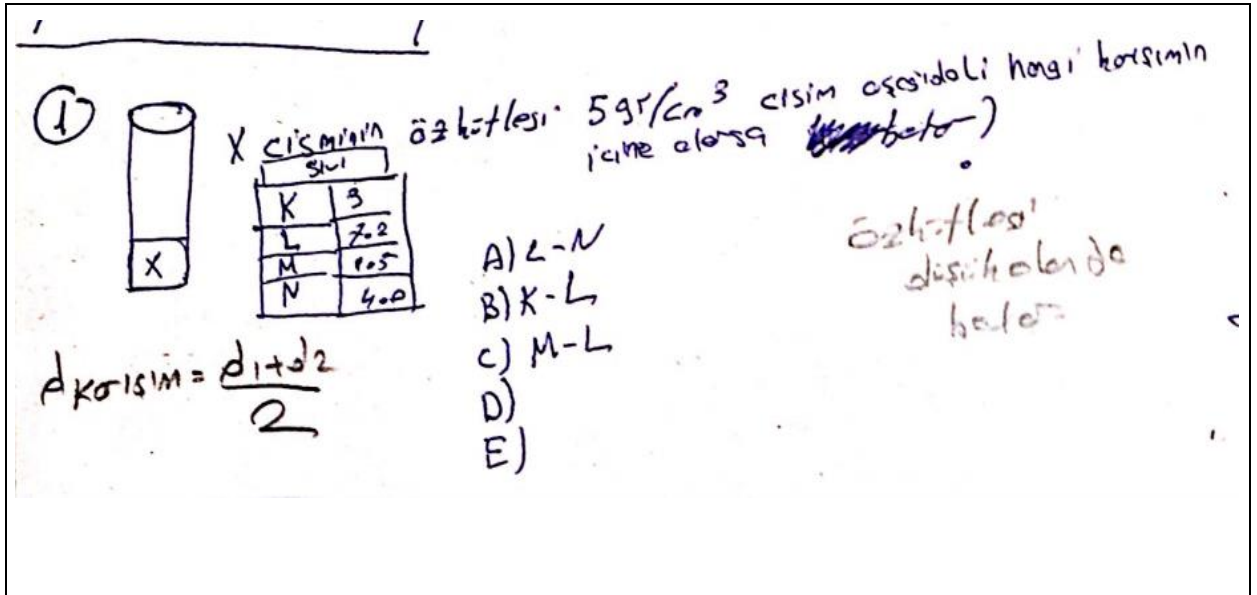 1
X cisminin özkütlesi 5 gr/cm³ cisim aşağıdaki hangi karışımın
içine alırsa batar)
Sıvı
K 3
L 7.2
M 1.5
N 4.0
X
A) L-N
B) K-L
C) M-L
D)
E)
özkütlesi
düşük olanda
batar
dkarışım = d1+d2
2